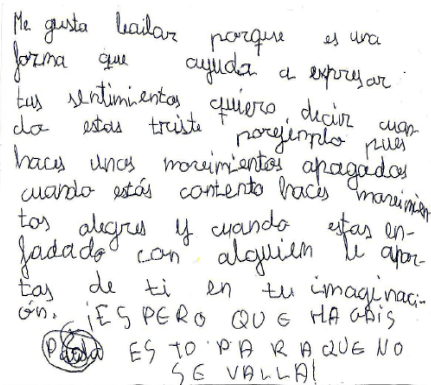 Me gusta bailar porque es una
forma que ayuda a expresar
tus sentimientos quiero decir cuan-
do estas triste porejemplo pues
haces unos moveimientos apagados
cuando estás contento haces moveimien
tos alegres y cuando estas en-
fadado con alguien le apar-
tas de ti en tu imaginaci-
ón. ¡ESPERO QUE HAGAIS
ESTO PARA QUE NO
SE VALLA!